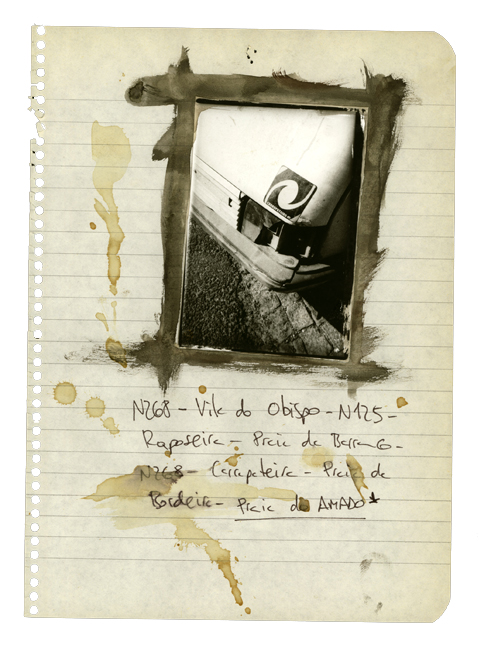 N268 - Vila do Obispo - N125 -
Raposeira - Praia da Barranco -
N268 - Carrapateira - Praia da
Bordeira - Praia do AMADO*